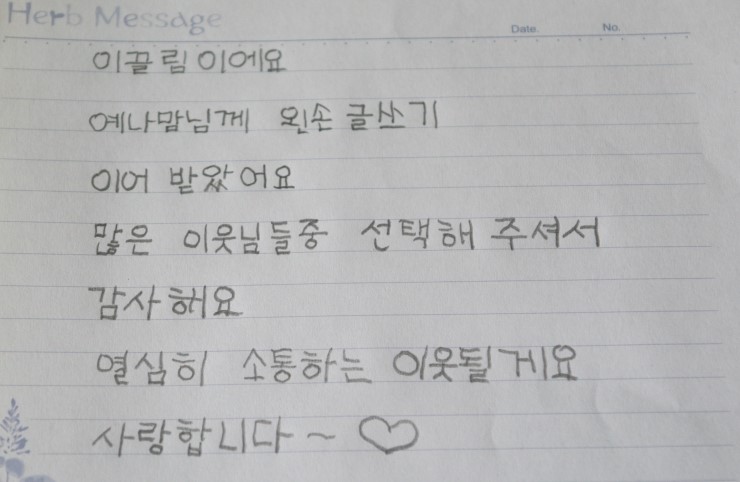 Herb Message
Date. No.
이끌림이에요
예나맘님게 왼손 글쓰기
이어 받았어요
많은 이웃님들중 선택해 주셔서
감사해요
열심히 소통하는 이웃될게요
사랑합니다~ ♡